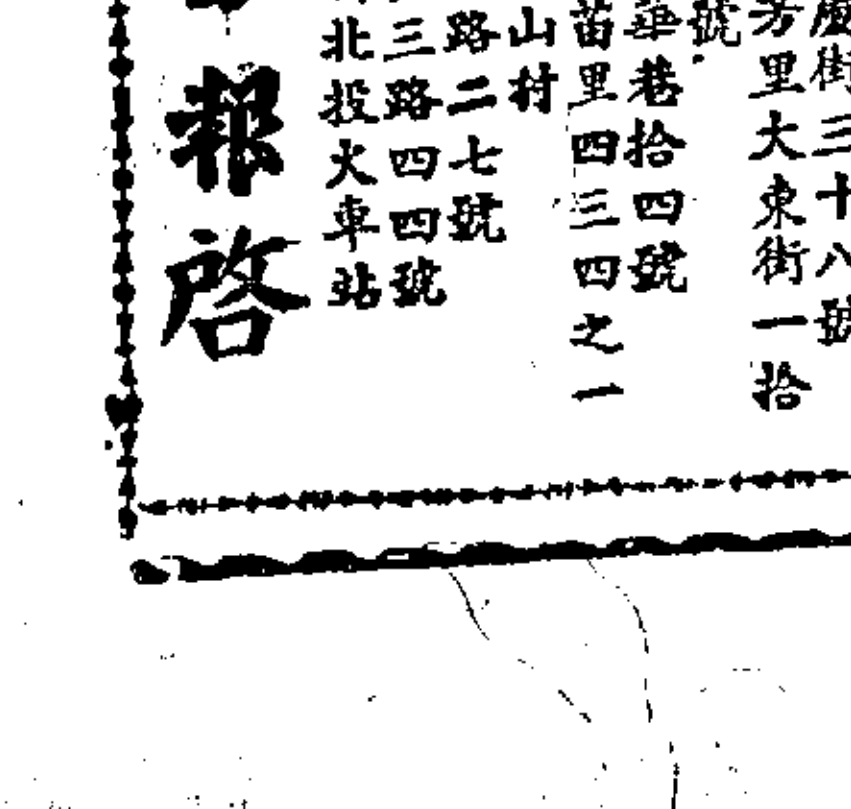 街三十八號
芳里大東街一拾
號
華巷拾四號
苗里四三四之一
山村
路二七號
三路四四號
北投火車站
報啓